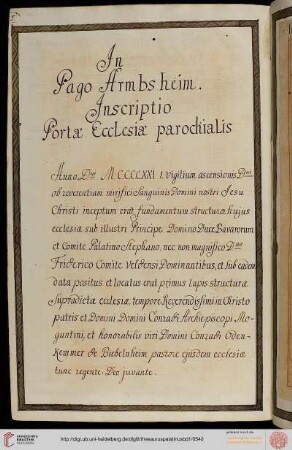 In
Pago Armbsheim.
Inscriptio
Portæ Ecclesiæ parochialis
Anno Dni MCCCCXXI. Vigilium ascensionis Dni
ob reverentiam mirifici Sanguinis Domini nostri Jesu
Christi inceptum erat fundamentum structuræ hujus
ecclesiæ sub illustri Principe Domino Duce Bavarorum
et Comite Palatino Stephano, nec non magnifico Dno
Friderico Comite Veldensi Dominantibus, et sub eadem
data positus et locatus erat primus lapis structuræ
Supradictæ ecclesiæ, tempore Reverendissimi in Christo
patris et Domini Domini Conradi Archiepiscopi Mo-
guntini, et honorabilis viri Domini Conradi Oden-
Kemmer de Biebelnheim pastore ejusdem ecclesiæ
tunc regente. Deo juvante.